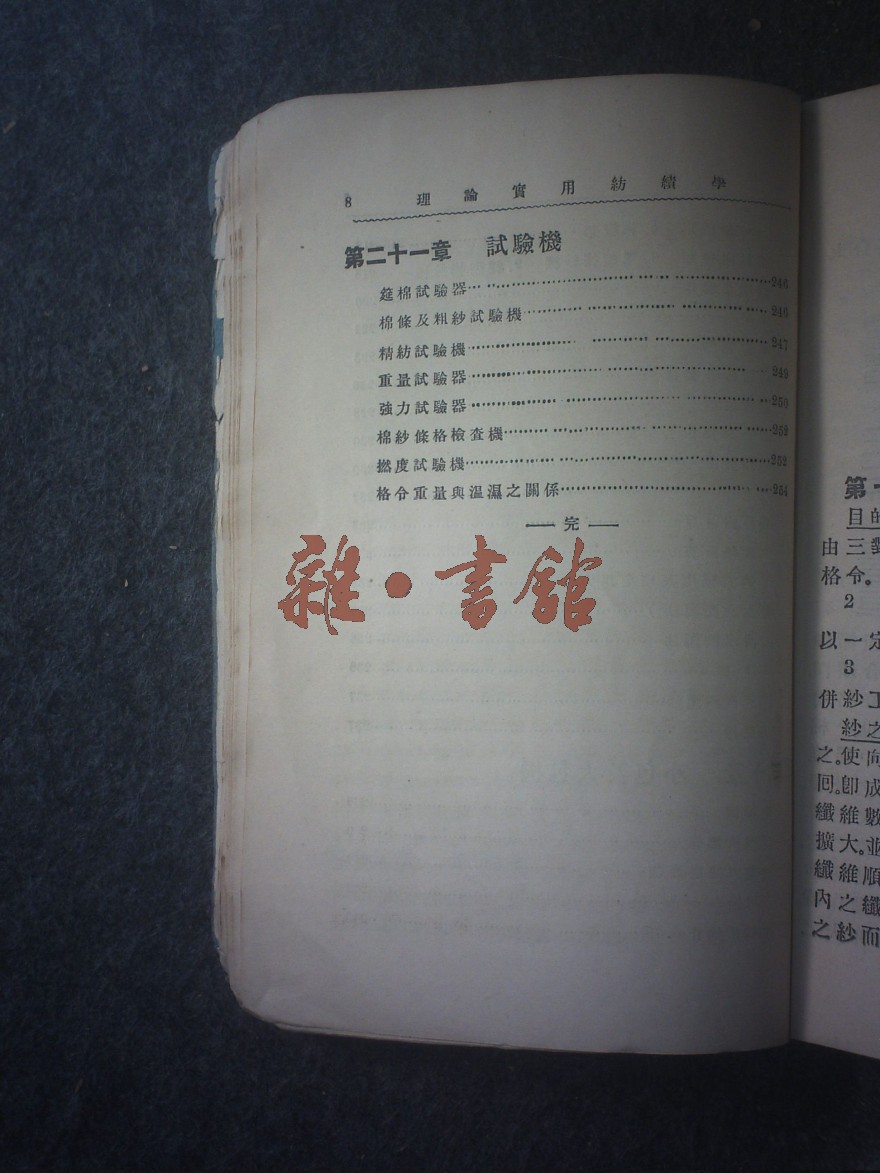 8 理論實用紡績學
第二十一章 試驗機
筵棉試驗器 246
棉條及粗紗試驗機 246
精紡試驗機 247
重量試驗器 249
強力試驗器 250
棉紗條格檢查機 252
撚度試驗機 253
格令重量與温濕之關係 254
—— 完 ——
雜·書館
第一
目的
由三對
格令。
2
以一定
3
併紗工
紗之
之。使向
回。卽成
纖維數
擴大。並
纖維順
內之纖
之紗而